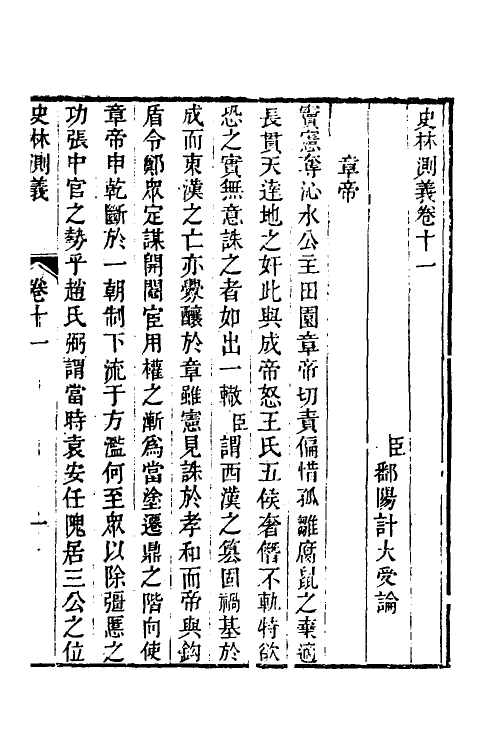 史林測義卷十一
臣鄱陽計大受論
章帝
竇憲奪沁水公主田園章帝切責偏惜孤雛腐鼠之棄適
長貫天達地之奸此與成帝怒王氏五侯奢僭不軌特欲
恐之實無意誅之者如出一轍臣謂西漢之篡固禍基於
成而東漢之亡亦釁釀於章雖憲見誅於孝和而帝與鈎
盾令鄭眾定謀開閹宦用權之漸為當塗遷鼎之階向使
章帝申乾斷於一朝制下流于方濫何至眾以除彊惡之
功張中官之勢乎趙氏弼謂當時袁安任隗居三公之位
史林測義
卷十一
一